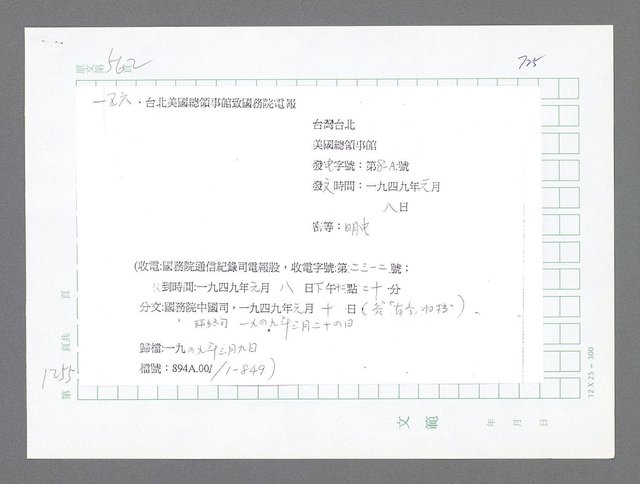 原文第562頁
725
一五六．台北美國總領事館致國務院電報
台灣台北
美國總領事館
發电字號：第8-A號
發文時間：一九四九年元月
八日
密等：明电
(收電:國務院通信紀錄司電報股，收電字號:第二三一二號：
收到時間:一九四九年元月八日下午七點二十分
分文:國務院中國司，一九四九年元月十日(
一九四九年三月二十四日
歸檔:一九四九年三月九日
檔號：894A.00/1-849)
第 1255 頁共 頁
12 X 25 = 300
文範
年 月 日